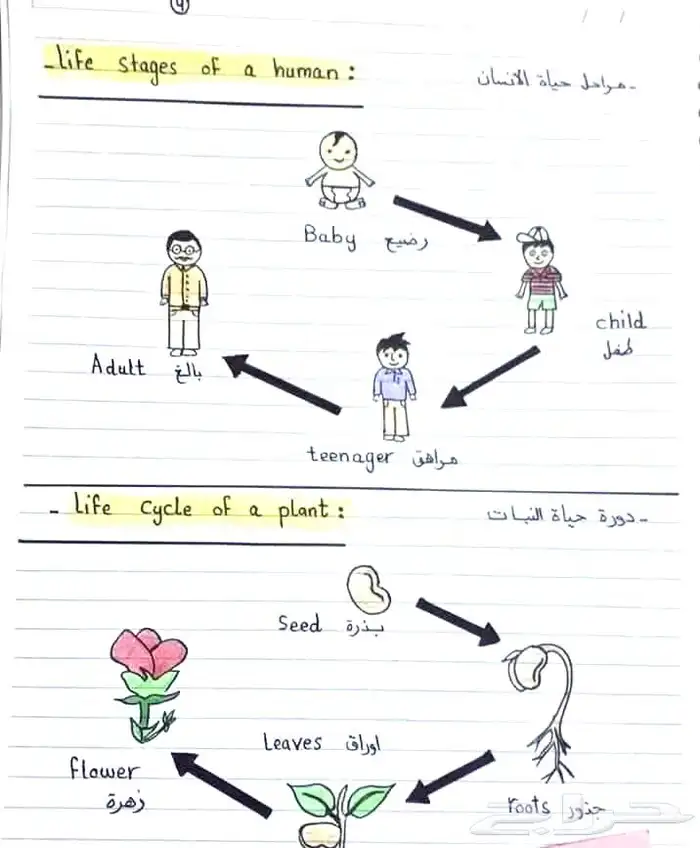 4
-life stages of a human :
-مراحل حياة الانسان
Baby رضيع
child
طفل
Adult بالغ
teenager مراهق
- life cycle of a plant :
-دورة حياة النبات
Seed بذرة
Leaves اوراق
flower
زهرة
roots جذور
حراج